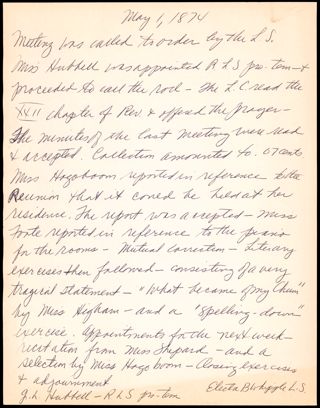 May 1, 1874
Meeting was called to order by the L.S.
Miss Hubbell was appointed R L S pro-tem - &
proceeded to call the roll - The L C read the
XXII chapter of Rev. & offered the prayer -
The minutes of the last Meeting were read
& accepted. Collection amounted to . 67 cents
Miss Hogoboom reported in reference to the
Reunion that it could be held at her
residence. The report was accepted - Miss
Foote reported in reference to the piano
for the rooms - Mutual correction - Literary
exercises then followed - consisting of a very
tragical statement - "What became of my Chum"
by Miss Higham - and a "Spelling-down"
exercise. Appointments for the next week -
recitation from Miss Shepard - and a
selection by Miss Hogoboom - Closing exercises
& adjournment
J. L. Hubbell - R L S pro-tem Electa B Whipple L.S.